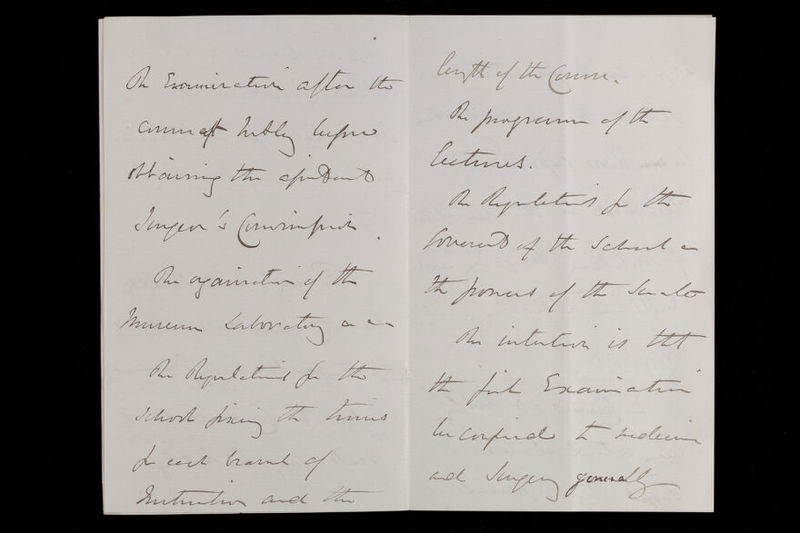 The Examination after the
course at Netley before
obtaining the Assistant
Surgeon's Commission.
The organization of the
Museum Laboratory
The Regulations for the
School fixing the times
for each branch of
Instruction and the
length of the Course.
The programme of the
lectures.
The Regulations for the
Government of the School
the powers of the Senate
The intention is that
the first Examination
be confined to medicine
and Surgery generally